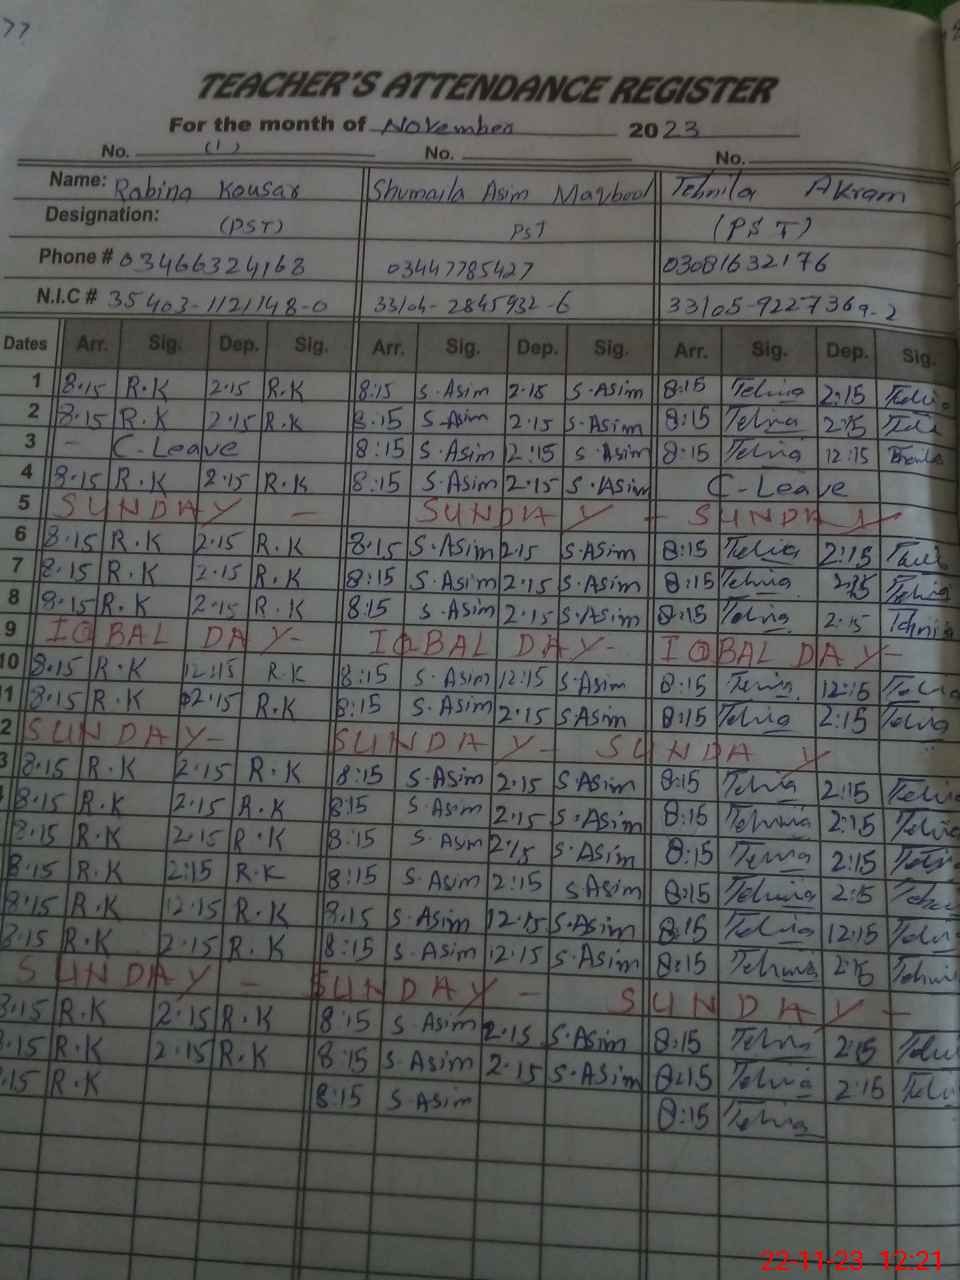 77
TEACHER'S ATTENDANCE REGISTER
For the month of November 2023
No. (1) No. No.
Name: Robina Kousar Shumaila Asim Maqbool Tehnila Akram
Designation: (PST) PST (PST)
Phone # 03466324168 03447785427 03081632176
N.I.C # 35403-1121148-0 33104-2845932-6 33105-9227369-2
Dates Arr. Sig. Dep. Sig. Arr. Sig. Dep. Sig. Arr. Sig. Dep. Sig.
1 8.15 R.K 2.15 R.K 8:15 S.Asim 2.15 S.Asim 8:15 2:15
2 8.15 R.K 2.15 R.K 8.15 S.Asim 2.15 S.Asim 8:15 2:15
3 - C-Leave 8:15 S.Asim 2:15 S.Asim 8:15 12:15
4 8.15 R.K 2.15 R.K 8:15 S.Asim 2.15 S.Asim C-Leave
5 SUNDAY - SUNDAY - SUNDAY
6 8.15 R.K 2.15 R.K 8:15 S.Asim 2.15 S.Asim 8:15 2:15
7 8.15 R.K 2.15 R.K 8:15 S.Asim 2.15 S.Asim 8:15 2:15
8 8.15 R.K 2.15 R.K 8:15 S.Asim 2.15 S.Asim 8:15 2:15
9 IQBAL DAY- IQBAL DAY- IQBAL DAY-
10 8.15 R.K 12:15 R.K 8:15 S.Asim 12:15 S.Asim 8:15 12:15
11 8.15 R.K 02.15 R.K 8:15 S.Asim 2.15 S.Asim 8:15 2:15
2 SUNDAY- SUNDAY- SUNDAY
3 8.15 R.K 2.15 R.K 8:15 S.Asim 2.15 S.Asim 8:15 2:15
8.15 R.K 2.15 R.K 8:15 S.Asim 2.15 S.Asim 8:15 2:15
8:15 R.K 2.15 R.K 8:15 S.Asim 2:15 S.Asim 8:15 2:15
8.15 R.K 2:15 R.K 8:15 S.Asim 2:15 S.Asim 8:15 2:15
8.15 R.K 12.15 R.K 8.15 S.Asim 12.15 S.Asim 8:15 12:15
8.15 R.K 2.15 R.K 8:15 S.Asim 12.15 S.Asim 8:15 2:15
SUNDAY - SUNDAY - SUNDAY -
8.15 R.K 2.15 R.K 8:15 S.Asim 2.15 S.Asim 8:15 2:15
8.15 R.K 2.15 R.K 8:15 S.Asim 2.15 S.Asim 8:15 2:15
.15 R.K 8:15 S.Asim 8:15
22-11-23 12:21